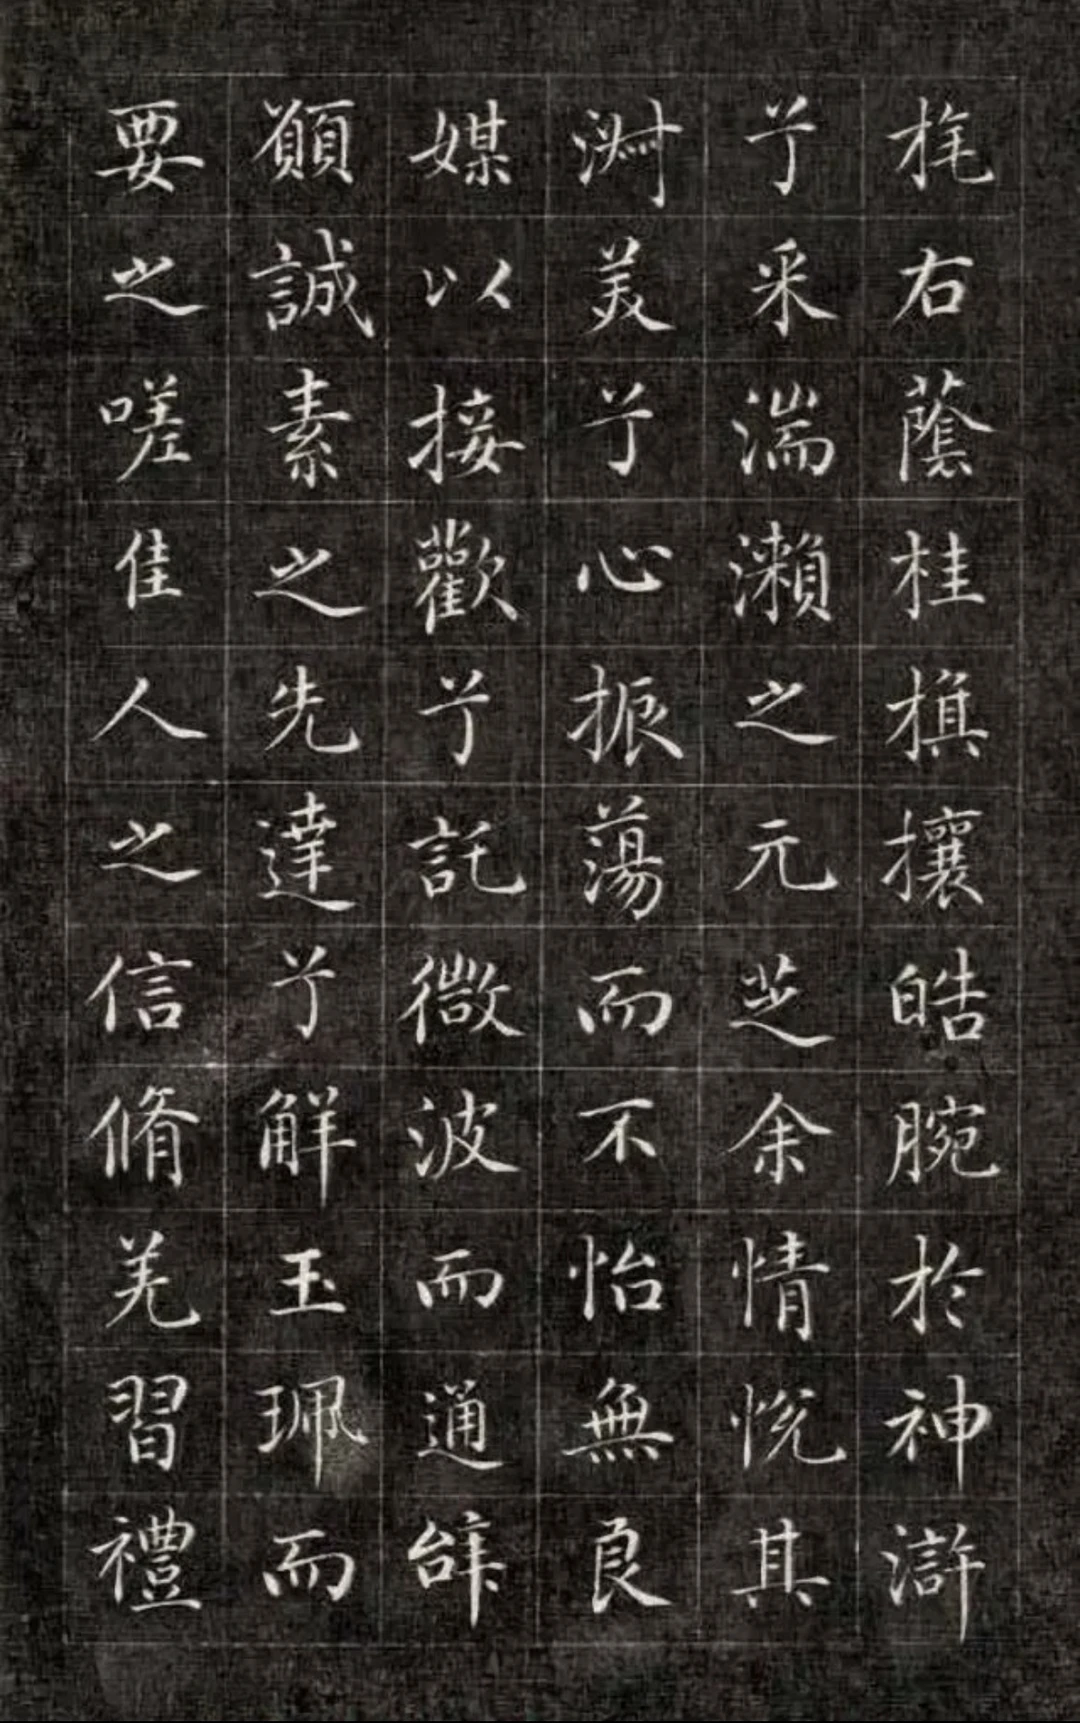 旄右蔭桂旗攘皓腕於神滸
兮采湍瀨之元芝余情悅其
淑美兮心振蕩而不怡無良
媒以接歡兮託微波而通辞
願誠素之先達兮解玉珮而
要之嗟佳人之信脩羌習禮